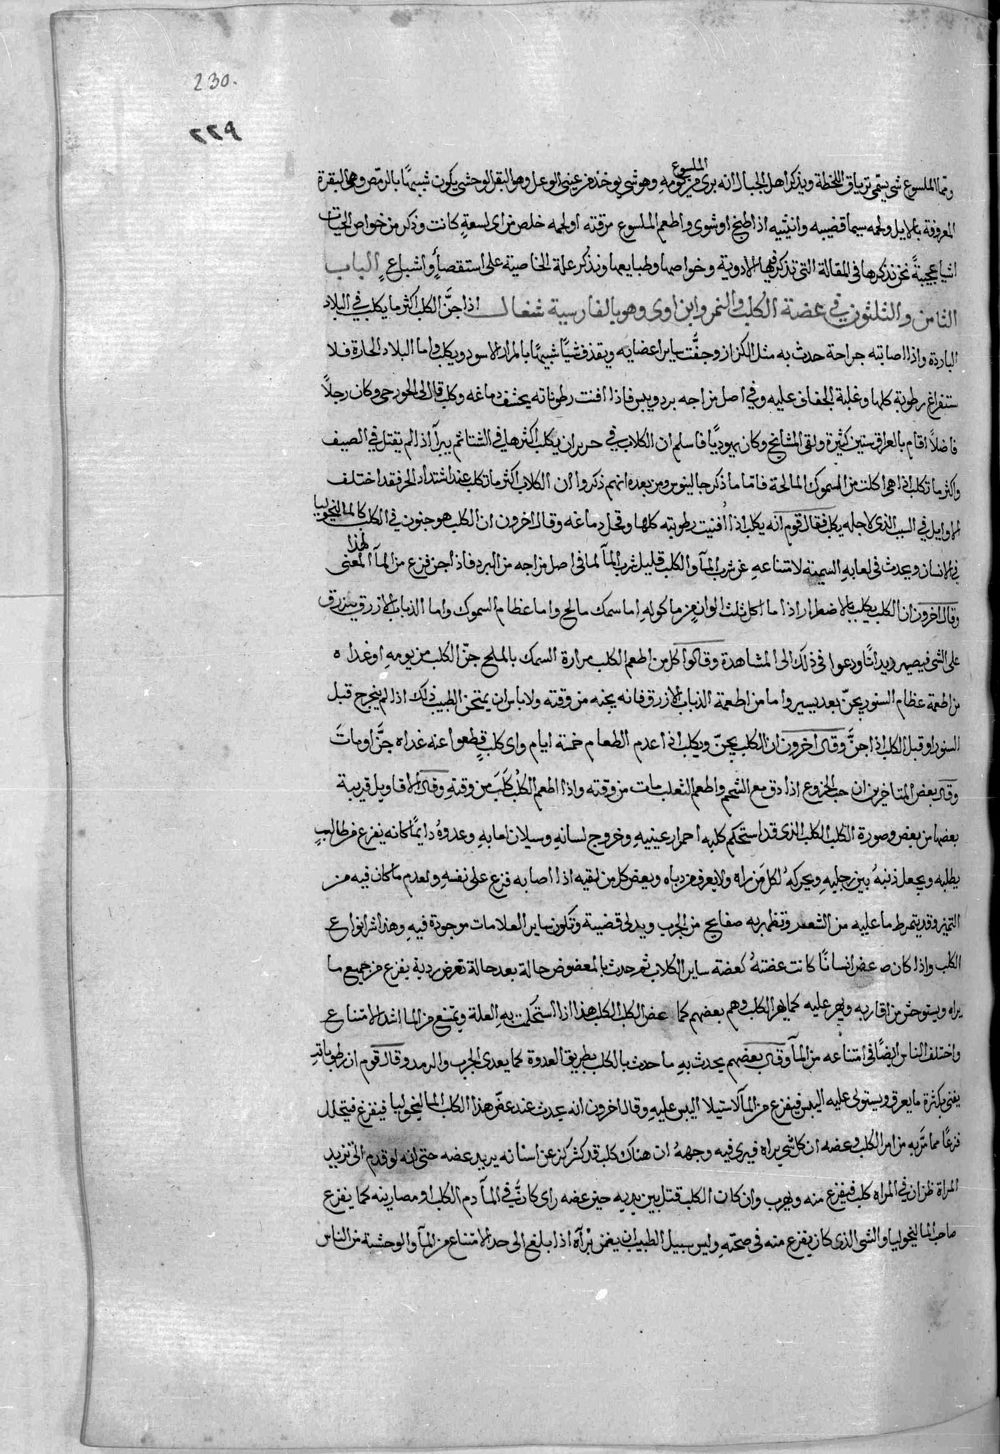 230.
٢٢٩
الملسوع شي يسمى ترياق اللحظة ويذكر اهل الجبال انه يرى من يومه الملسوع وهو شي يوخذ من عيني الوعل وهو البقر الوحشي يكون شبيها بالرمص وهي البقرة
المعروفة بالايل ولحمه سيما قضيبه وانثييه اذا طبخ او شوى واطعم الملسوع مرقته او لحمه خلص من اي لسعة كانت وذكر من خواص الحيات
اشيا عجيبة نحن نذكرها في المقالة التي تذكر فيها الادوية وخواصها وطبايعها ونذكر علة الخاصية على استقصاء واشباع الباب
الثامن والثلثون في عضة الكلب والنمر وابن اوى وهو بالفارسية شغال اذا جن الكلب اكثر ما يكلب في البلاد
الباردة واذا اصابته جراحة حدث به مثل الكزاز وجفت ساير اعضايه ويقذف شيا شبيها بالمرار الاسود ويكلب واما البلاد الحارة فلا
ستفراغ رطوبة كلها وغلبة الجفاف عليه وفي اصل مزاجه برد ويبس فاذا افنت رطوباته يجفف دماغه وكلب قال لي الخورحي وكان رجلا
فاضلا اقام بالعراق سنين كثيرة ولقى المشايخ وكان يهوديا فاسلم ان الكلاب في حريران يكلب اكثرها في الشتا ثم يبرأ اذا لم يقتل في الصيف
واكثر ما تكلب اذا هي اكلت من السموك المالحة فاما ما ذكر جالينوس ومن بعده انهم ذكروا ان الكلاب اكثر ما تكلب عند اشتداد الحر فقد اختلف
الاوايل في السبب الذي لاجله يكلب فقال قوم انه يكلب اذا افنيت رطوبته كلها وقحل دماغه وقال اخرون ان الكلب هو جنون في الكلب كالمالنخوليا
في الانسان ويحدث في لعابه السمية لامتناعه عن شرب المآ والكلب قليل شرب المآ لما في اصل مزاجه من البرد فاذا جن فزع من المآ لهذا المعنى
وقال اخرون ان الكلب يكلب بالاضطرار اذا ما اكل ثلث الوان من ماكوله اما سمك مالح واما عظام السموك واما الذباب الازرق يتزرق
على الشي فيصير ديدانا ودعوا في ذلك الى المشاهدة وقالوا كل من اطعم الكلب مرارة السمك بالملح جن الكلب من يومه او غداه
من اطعمة عظام السنور يجن بعد يسير واما من اطعمة الذباب الازرق فانه يجنه من وقته ولا باس ان يمتحن الطبيب ذلك اذا لم يتحرج قبل
السنور او قبل الكلب اذا جن وقال اخرون ان الكلب يجن ويكلب اذا عدم الطعام خمسة ايام واي كلب قطعوا عنه غداه جن او مات
وقال بعض المتاخرين ان حب الخروع اذا دق مع الشحم واطعم الثعلب مات من وقته واذا اطعم الكلب كلب من وقته وقال الاقاويل قريبة
بعضها من بعض وصورة الكلب الكلب الذي قد استحكم كلبه احمرار عينيه وخروج لسانه وسيلان لعابه وعدوه دايما كانه يفزع من طالب
يطلبه ويجعل ذنبه بين رجليه ويحركه لكل من راه ولا يعرف من رباه ويعض كل من لقيه اذا اصابه فزع على نفسه ولعدم ما كان فيه من
التميز وقد يتمرط ما عليه من الشعر وتظهر به صفايح من الجرب ويدلى قضيبة وتكون ساير العلامات موجودة فيه وهذا شر انواع
الكلب واذا كان عض انسانا كانت عضته كعضة ساير الكلاب ثم حدث بالمعضوض حالة بعد حالة تعرض ردية يفزع من جميع ما
يراه ويستوحش من اقاربه ويهر عليه كما يهر الكلب وهم بعضهم كما عض الكلب الكلب هذا اذا استحكمت به العلة ويمتنع من الما اشد الامتناع
واختلف الناس ايضا في امتناعه من المآ وقال بعضهم يحدث به ما حدث بالكلب بطريق العدوة كما يعدى الجرب والرمد وقال قوم ان رطوباته
يفنى بكثرة ما يعرق ويستولى عليه اليبس فيفزع من المآ لاستيلا اليبس عليه وقال اخرون انه يحدث عند عض هذا الكلب المالنخوليا فيفزع فيتخلل
فزعا مما مر به من امر الكلب وعضه ان كل شي يراه فيرى فيه وجهه ان هناك كلب قد كشر كز عن اسنانه يريد عضه حتى انه لو قدم اليه
المراة ظن ان في المراه كلب فيفزع منه ويهرب وان كان الكلب قتل بين يديه حين عضه راى كان في المآ دم الكلب او مصارينه كما يفزع
صاحب المالنخوليا والشي الذي كان يفزع منه في صحته وليس سبيل الطبيب ان يضمن برآه اذا بلغ الى حد الامتناع من المآ والوحشة من الناس